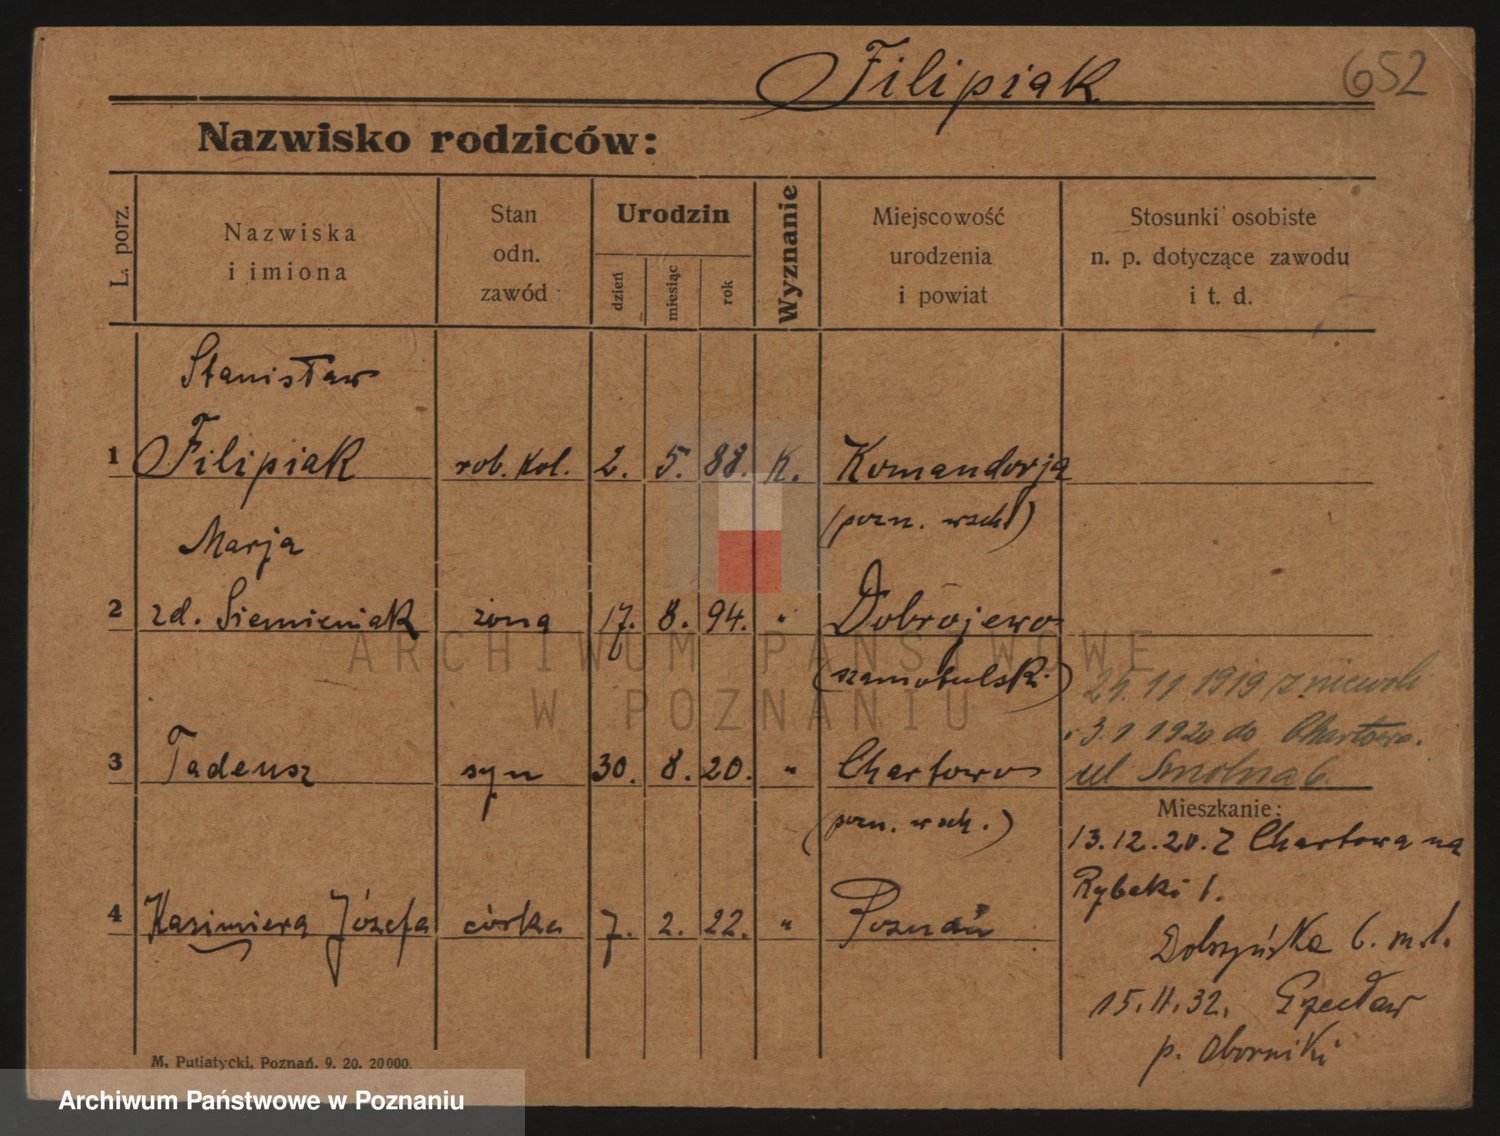 Filipiak
652
Nazwisko rodziców:
L. porz.
Nazwiska
i imiona
Stan
odn.
zawód
Urodzin
dzień
miesiąc
rok
Wyznanie
Miejscowość
urodzenia
i powiat
Stosunki osobiste
n. p. dotyczące zawodu
i t. d.
Stanisław
1 Filipiak rob. kol. 2. 5. 88. K. Komandorja
(pozn. wsch)
Marja
2 zd. Siemieniak żona 17. 8. 94. " Dobrojewo
(szamotulski)
3 Tadeusz syn 30. 8. 20. " Chartowo
(pozn. wsch.)
4 Kazimiera Józefa córka 7. 2. 22. " Poznań
1919 z niewoli
3.1 1920 do Chartowa.
ul Smolna 6.
Mieszkanie:
13.12.20. Z Chartowa na
Rybaki 1.
6. m. 1.
15.II.32.
p. Oborniki
M. Putiatycki, Poznań. 9. 20. 20000.
ARCHIWUM PAŃSTWOWE
W POZNANIU
Archiwum Państwowe w Poznaniu